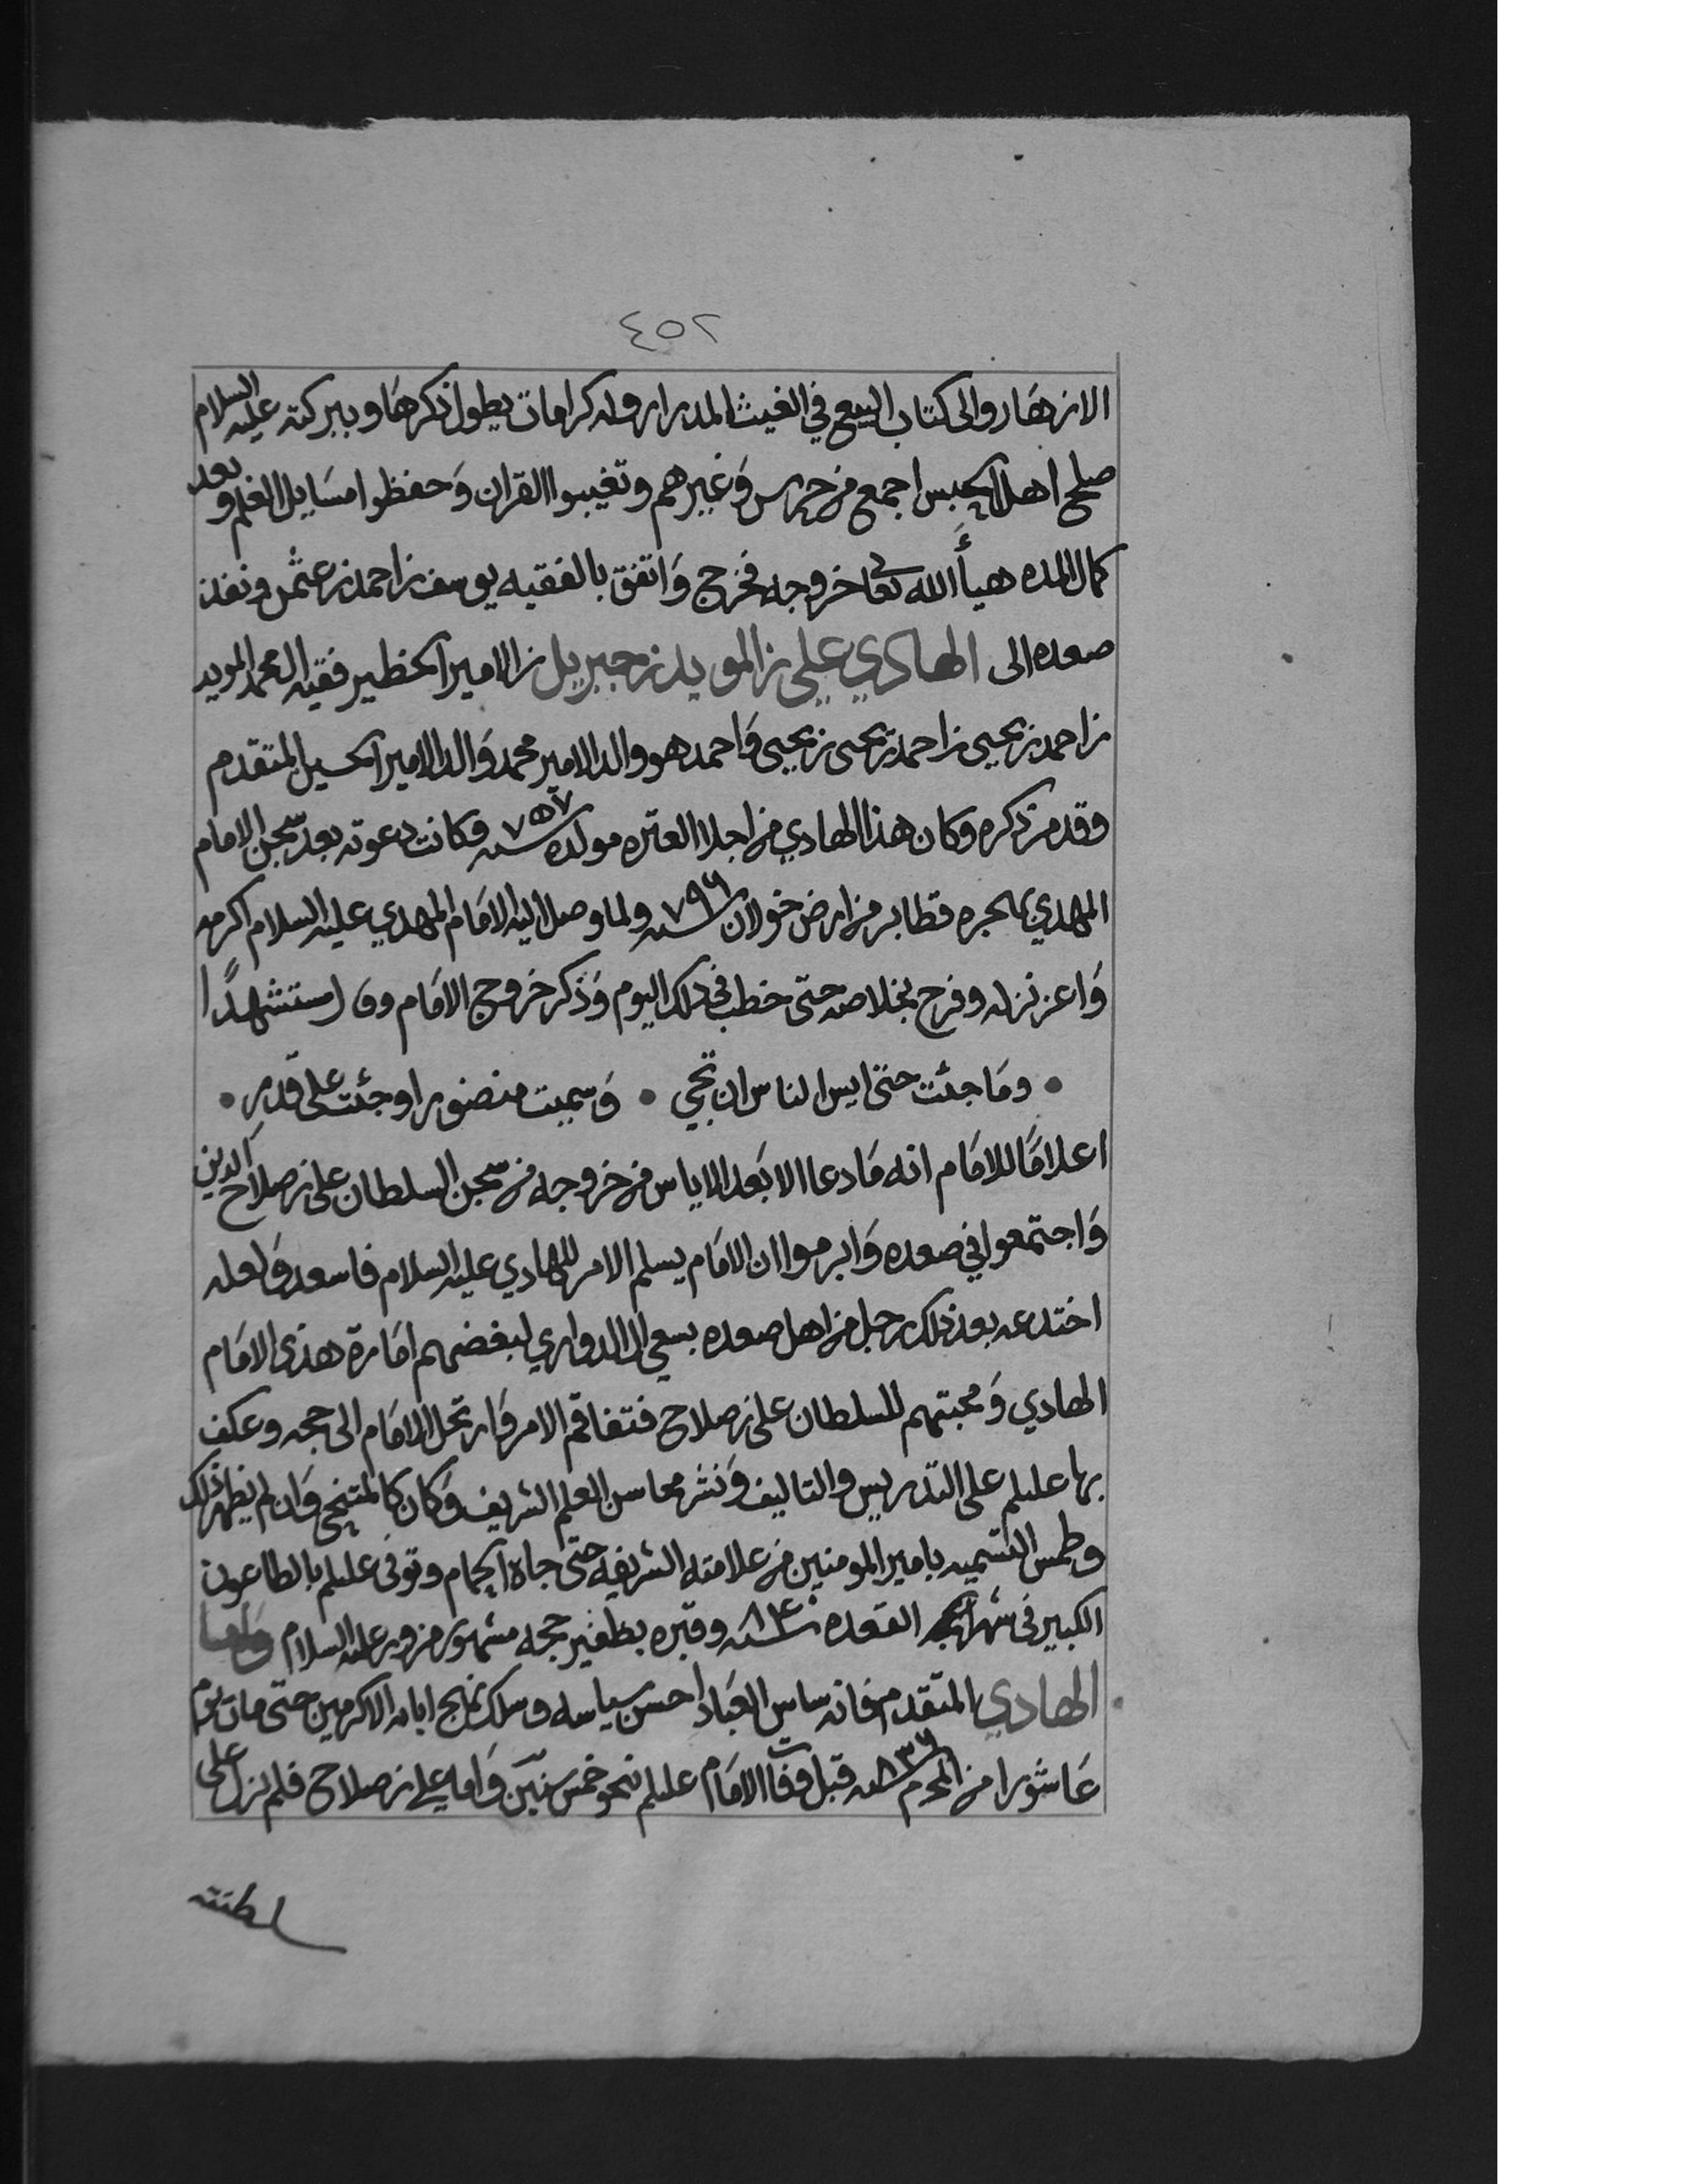 ٤٥٢
الازهار والى كتاب البيع في الغيث المدرار وله كرامات يطول ذكرها وببركته عليه السلام
صلح اهل الحبس اجمع من حرس وغيرهم وتغيبوا القران وحفظوا مسايل العلم وبعد
كمال المده هيأ الله تعالى خروجه فخرج واتفق بالفقيه يوسف بن احمد بن عثمن ونفذ
صعده الى الهادي علي بن المويد بن جبريل بن الامير الخطير فقيه ال محمد المويد
بن احمد بن يحيى بن احمد بن يحيى بن يحيى واحمد هو والد الامير محمد والد الامير الحسين المتقدم
وقد مر ذكره وكان هذا الهادي من اجلا العتره مولده سنه ٧٥٧ وكانت دعوته بعد سجن الامام
المهدي بهجره قطابر من ارض خولان سنه ٧٩٦ ولما وصل اليه الامام المهدي عليه السلام اكرمه
واعز نزله وفرح بخلاصه حتى خطب في ذلك اليوم وذكر خروج الامام وقال مستشهدًا
وما جئت حتى ايس الناس ان تجي • وسميت منضورا وجئت على قدرِ •
اعلاما للامام انه ما دعا الا بعد الاياس من خروجه من سجن السلطان علي بن صلاح الدين
واجتمعوا في صعده وابرموا ان الامام يسلم الامر للهادي عليه السلام فاسعد ولعله
اختدعه بعد ذلك رجل من اهل صعده بسعي ال الدواري لبغضهم امارة هذي الامام
الهادي ومحبتهم للسلطان علي بن صلاح فتفاقم الامر وارتحل الامام الى حجه وعكف
بها عليلم على التدريس والتاليف ونشر محاسن العلم الشريف وكان كالمتنحى وان لم يظهر ذلك
وطمس التسميه بامير المومنين من علامته الشريفه حتى جاه الحمام وتوفى عليلم بالطاعون
الكبير في شهر القعده سنه ٨٤٠ وقبره بظفير حجه مشهور مزور عليه السلام واما
الهادي المتقدم فانه ساس العباد احسن سياسه وسلك نهج ابائه الاكرمين حتى مات يوم
عاشورا من المحرم سنه ٨٣٦ قبل وفات الامام عليلم نحو خمس سنين واما علي بن صلاح فلم يزل على
سلطنته